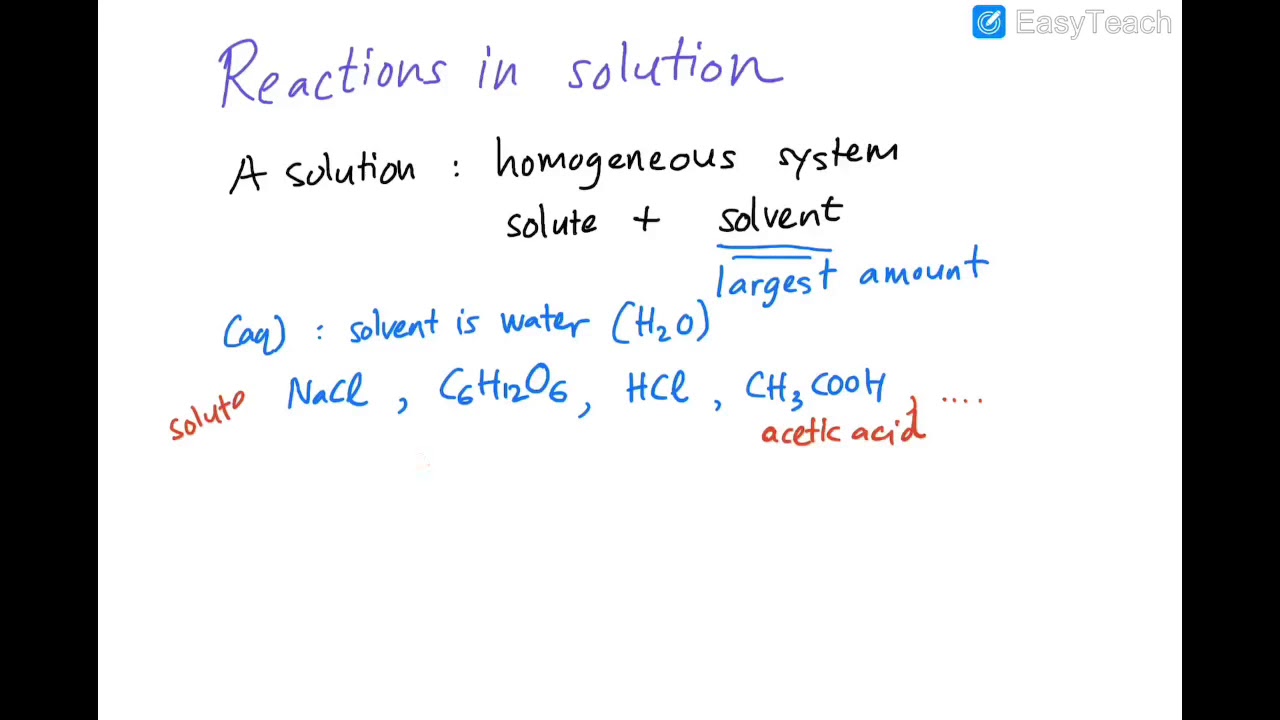 EasyTeach
Reactions in solution
A solution : homogeneous system
solute + solvent
largest amount
(aq) : solvent is water (H₂O)
solute NaCl , C₆H₁₂O₆ , HCl , CH₃COOH , ....
acetic acid